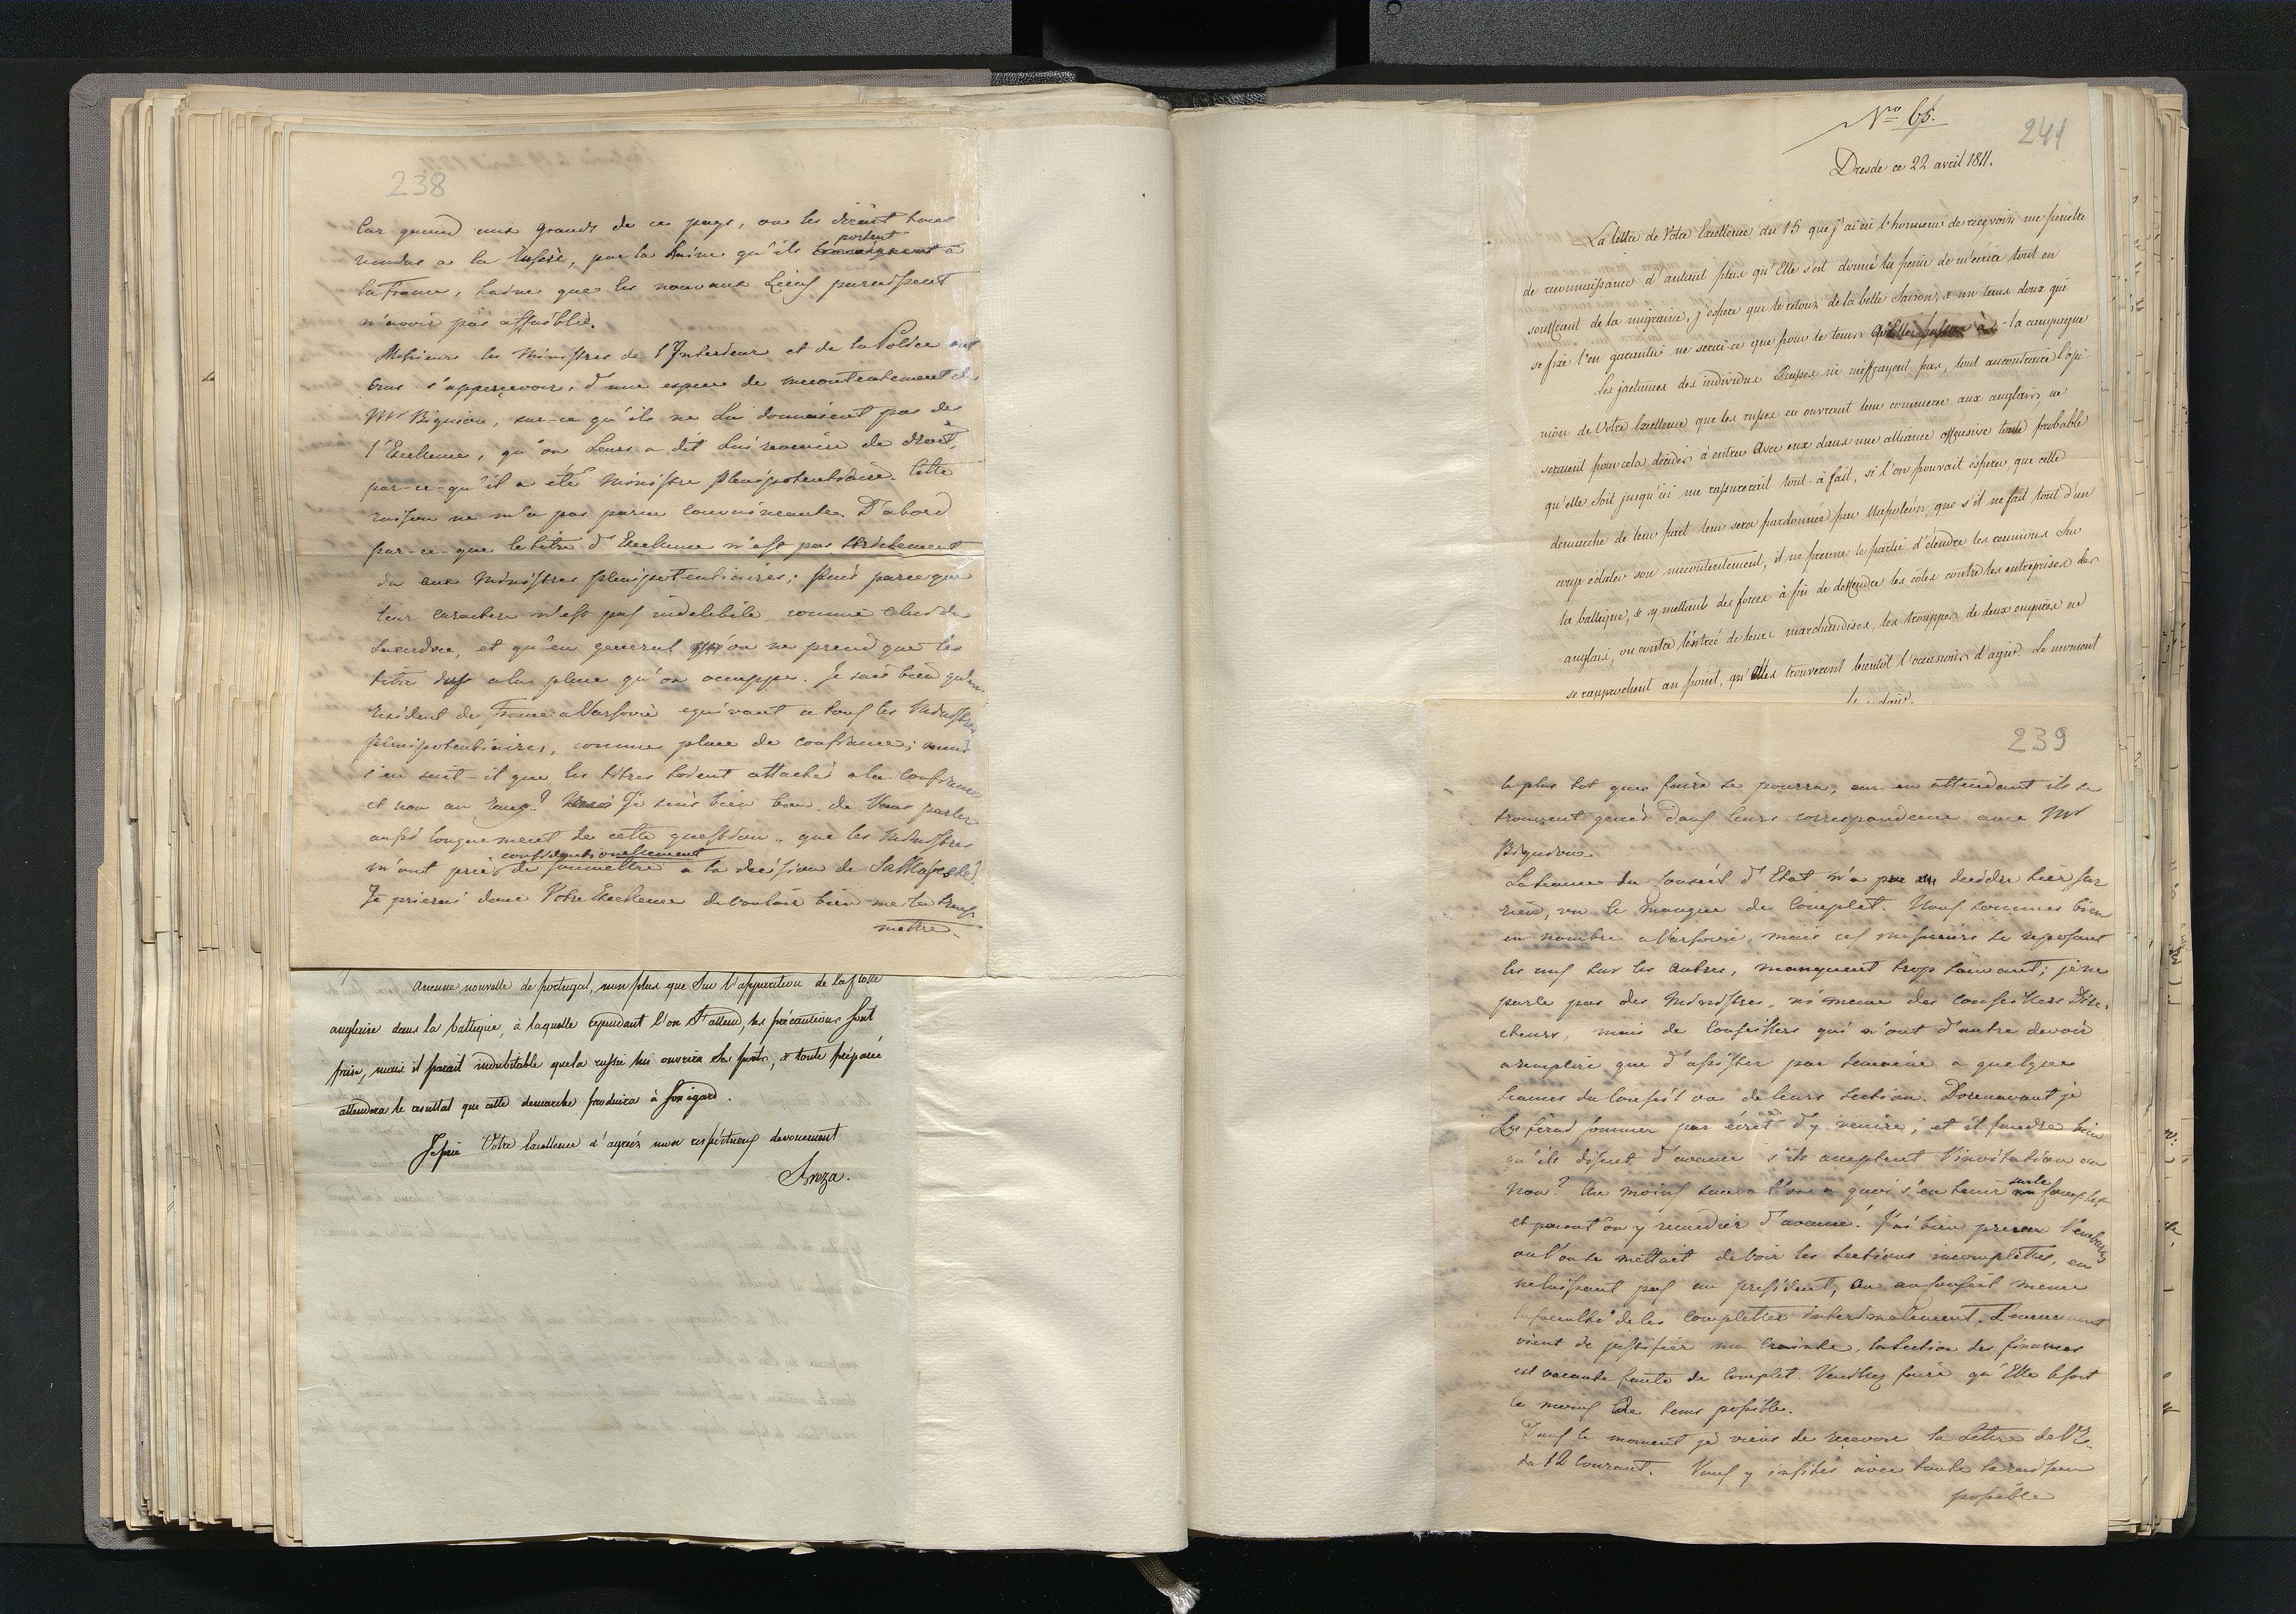 238
Car quand aux grands de ce pays, on les diroit tous
vendus a la Russie, par la haine qu'ils portent a
la France, haine que les nouveaux liens paroissent
n'avoir pas affaiblie.
Messieurs les Ministres de l'Interieur et de la Police ont
cru s'appercevoir, d'une espece de mecontentement de
Mr Bignion, sur-ce qu'ils ne lui donnaient pas de
l'Excellence, qu'on leurs a dit lui revenir de droit,
par-ce-qu'il a été Ministre plenipotentiaire. Cette
raison ne m'a pas parue convaincante. D'abord
par-ce-que le titre d'Excellence n'est pas strictement
du aux Ministres plenipotentiaires; puis parceque
leur caractere n'est pas indelebile, comme celui du
Sacerdoce, et qu'en general on ne prend que les
titres dus a la place qu'on occuppe. Je sais bien qu'un
Resident de France a Varsovie equivaut a tous les Ministres
plenipotentiaires, comme place de confiance; mais
s'en suit-il que les titres soient attachés a la confiance
et non au rang? Je suis bien bon de Vous parler
aussi longuement de cette question, que les Ministres
m'ont priés confidentionellement de soumettre a la decision de Sa Majesté.
Je prierai donc Votre Excellence de vouloir bien me la trans-
mettre.
Aucune nouvelle de portugal, non plus que sur l'apparition de la flotte
anglaise dans la baltique, à laquelle cependant l'on s'attend, les précautions sont
prises, mais il parait indubitable que la russie lui ouvrira ses ports, & toute préparée
attendera le resultat que cette demarche produira à son égard.
Je prie Votre Excellence d'agréer mon respectueux devouement
Breza.
Nro 65.
241
Dresde ce 22 avril 1811.
La lettre de Votre Excellence du 15 que j'ai eu l'honneur de recevoir me pénètre
de reconnaissance d'autant plus qu'Elle s'est donné la peine de m'écrire tout en
souffrant de la migraine, j'espere que le retour de la belle saison, & un tems doux qui
se fixe l'en garantir ne serai-ce que pour le tems la campagne
Les jactances des individus Russes ne m'effrayent pas, tout aucontraire l'opi-
nion de Votre Excellence que les russes en ouvrant leur commerce aux anglais, ne
seraient pour cela décidés à entrer avec eux dans une alliance offensive toute probable
qu'elle soit jusqu'ici me rassurerait tout-à fait, si l'on pouvait espérer, que cette
demarche de leur part leur sera pardonnée par Napoleon, que s'il ne fait tout d'un
coup éclater son mecontentement, il ne prenne le parti d'étendre les reunions sur
la baltique, & y mettant des forces à fin de deffendre les côtes contre les entreprises des
anglais, ou contre l'entrée de leurs marchandises, les trouppes de deux empires se
se rapprochent au point, qu'elles trouveront bientôt l'occasion d'agir. Le moment
239
le plus tot que faire se pourra, car en attendant ils se
trouvent genés dans leurs correspondance avec Mr
Bignion.
La seance du Conseil d'Etat n'a pu decider hier sur
rien, vu le manque de complet. Nous sommes bien
en nombre a Varsovie, mais ces messieurs se reposant
les uns sur les autres, manquent trop souvant; je ne
parle pas des Ministres, ni meme des conseillers Dire-
cteurs, mais de Conseillers qui n'ont d'autre devoir
a remplire que d'assister par semaine a quelques
seances du Conseil ou de leurs section. Dorenavant je
les ferai sommer par écrit d'y venire; et il faudra bien
qu'ils disent d'avance s'ils acceptent l'invitation ou
non? Au moins saura t'on a quoi s'en tenir sur le complet
et pourat'on y remedier d'avance. J'ai bien prevu l'embaras
ou l'on se mettait de voir les sections incompletes, en
ne laissant pas au president, ou au Conseil meme
la faculté de les completter interimalement. L'evenement
vient de justifier ma crainte, la section des finances
est vacante faute de complet. Veuillez faire qu'Elle le soit
le moins de tems possible.
Dans le moment je viens de recevoir la Lettre de V. E.
du 12 Courant. Vous y insistés avec toute la raison
possible